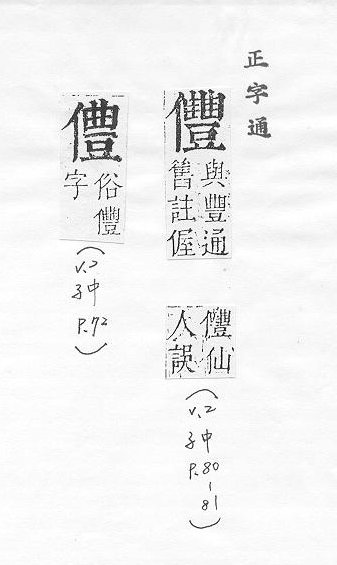 正字通
㒥
與豐通
舊註偓
㒥仙
人誤
(V.2
子中
P.80
-
81)
僼
俗㒥
字
(V.2
子中
P.72)